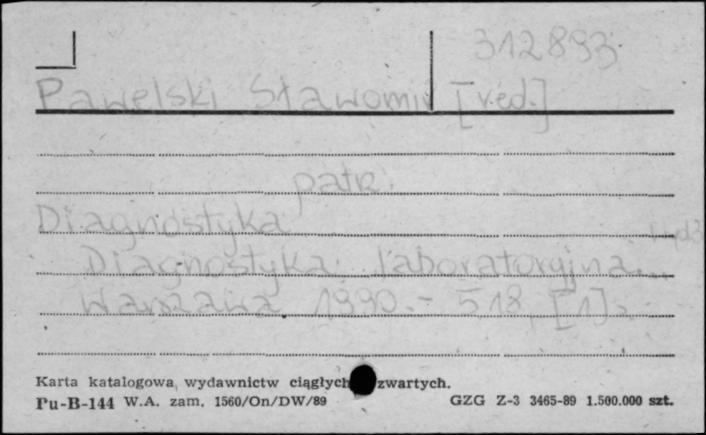 312893
Pawelski Sławomir [red.]
patrz:
Diagnostyka
Diagnostyka laboratoryjna...
Warszawa 1990.- 518 [1]s.
Karta katalogowa wydawnictw ciągłych zwartych.
Pu-B-144 W.A. zam. 1560/On/DW/89 GZG Z-3 3465-89 1.500.000 szt.